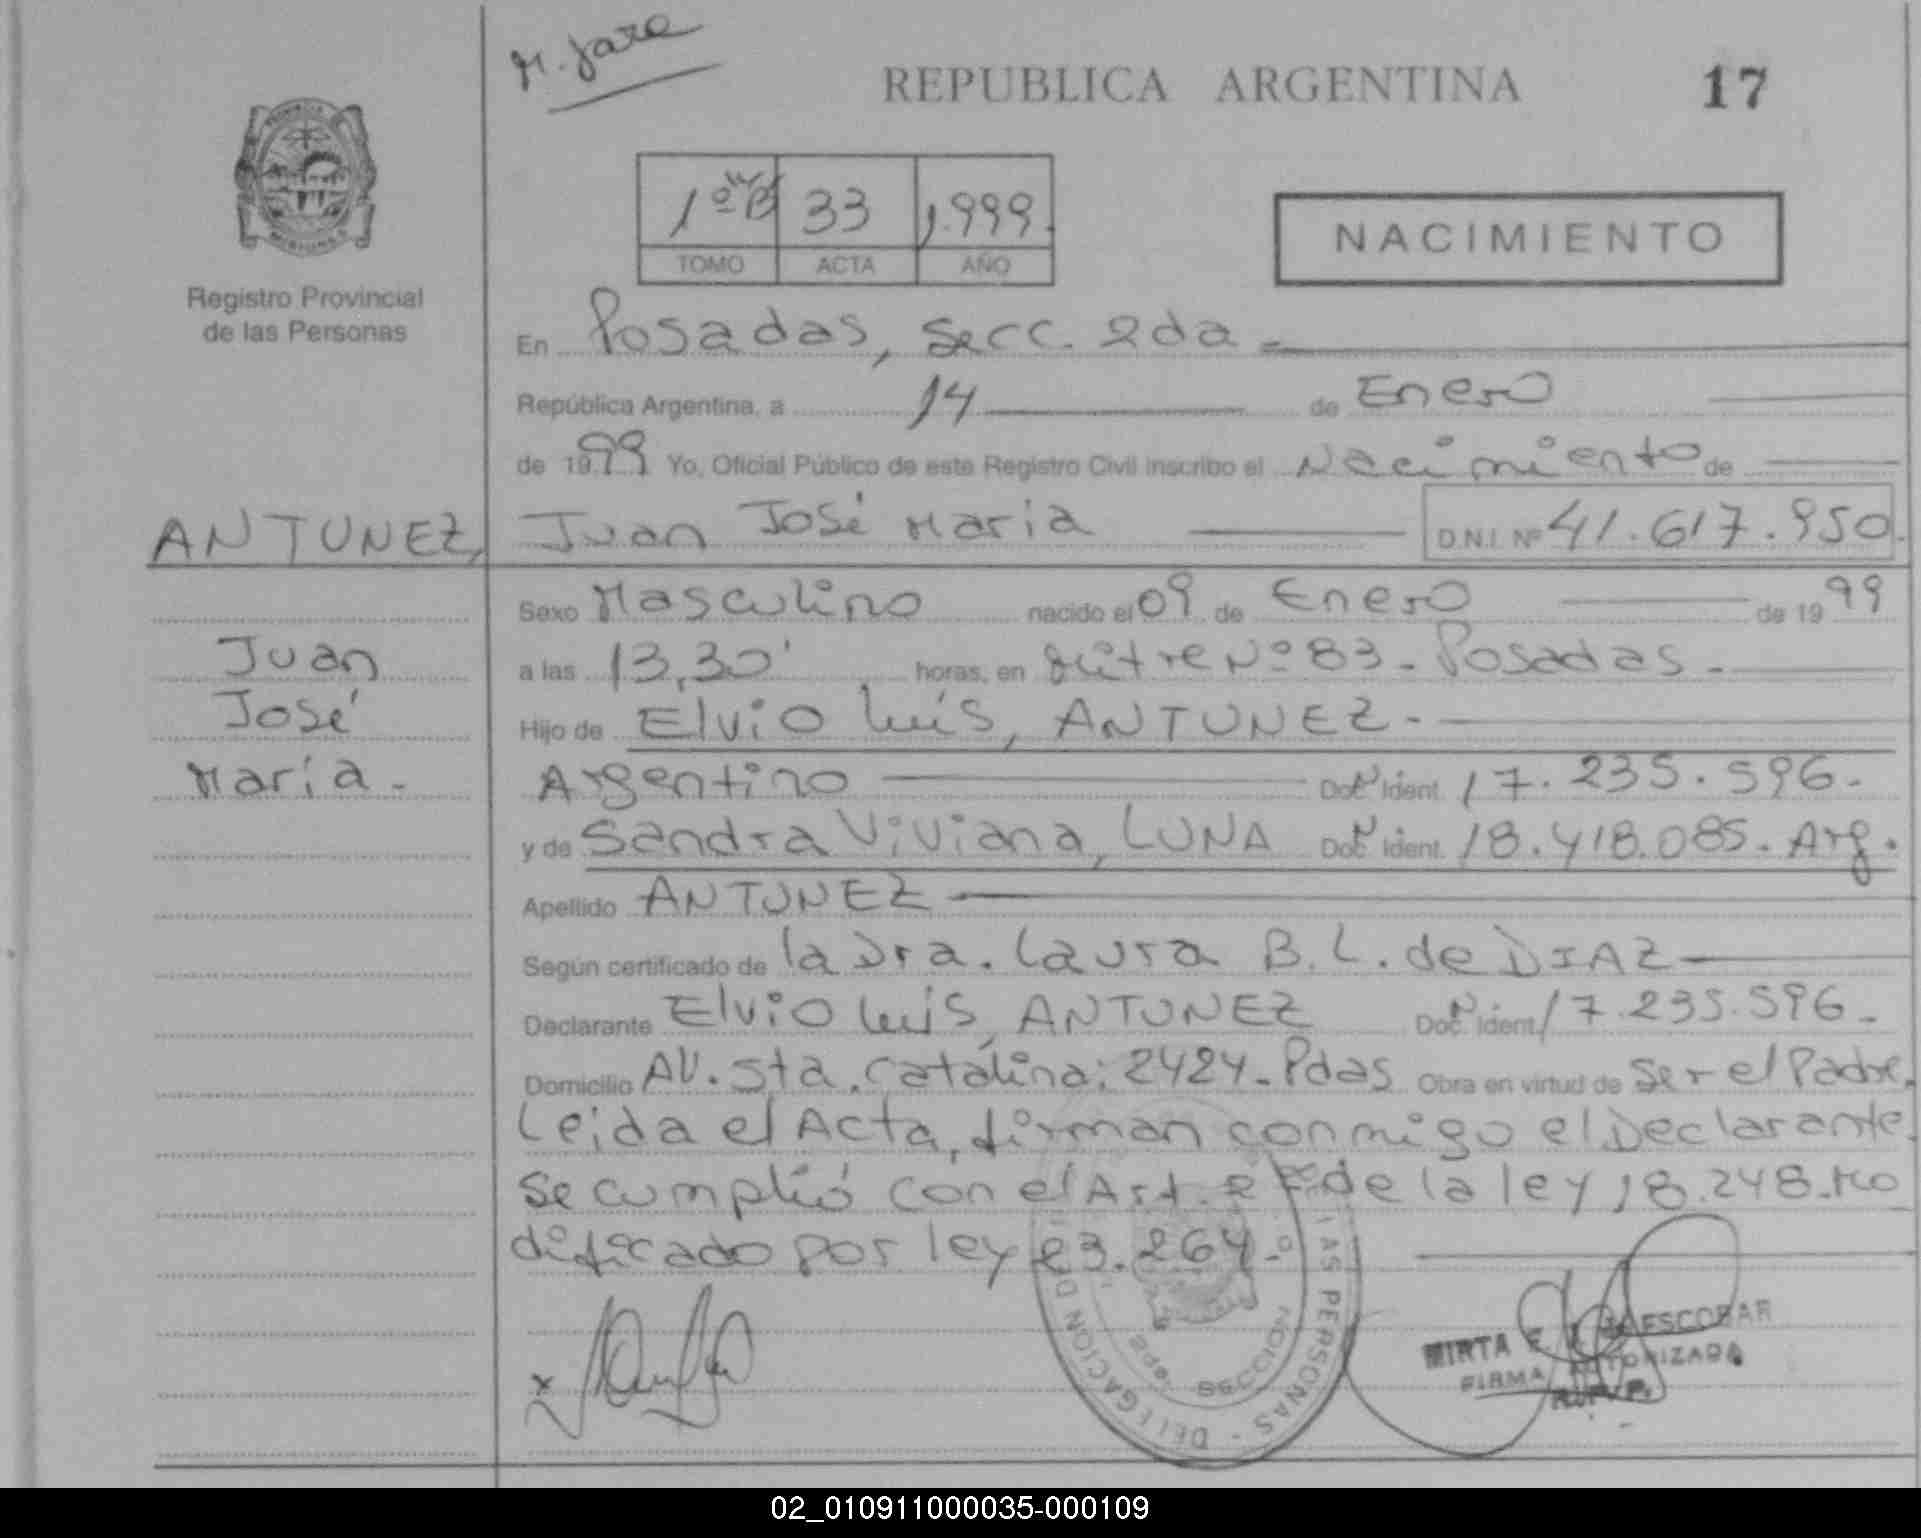 M. Jara
REPUBLICA ARGENTINA
17
1º "B" 33 1.999.
TOMO ACTA AÑO
NACIMIENTO
Registro Provincial
de las Personas
En Posadas, Secc. 2da.
República Argentina, a 14 de Enero
de 1999 Yo, Oficial Público de este Registro Civil inscribo el Nacimiento de
ANTUNEZ, Juan José María D.N.I. Nº 41.617.950.
Sexo Masculino nacido el 09 de Enero de 1999
Juan
a las 13,30' horas, en Mitre Nº 83 - Posadas -
José
Hijo de Elvio Luís, ANTUNEZ -
María -
Argentino Doc. Nº Ident. 17.235.596.-
y de Sandra Viviana, LUNA Doc. Nº Ident. 18.418.085. Arg.
Apellido ANTUNEZ
Según certificado de la Dra. Laura B. L. de DIAZ
Declarante Elvio Luís, ANTUNEZ Doc. Nº Ident. 17.235.596.-
Domicilio AV. Sta. Catalina: 2424 - Pdas Obra en virtud de Ser el Padre.
Leida el Acta, firman conmigo el Declarante.
Se cumplió con el Art. 2º de la ley 18.248. Mo
dificado por ley 23.264.-
DELEGACION DE LAS PERSONAS
SECCION
MIRTA E. ESCOBAR
FIRMA AUTORIZADA
R.P.P.
02_010911000035-000109